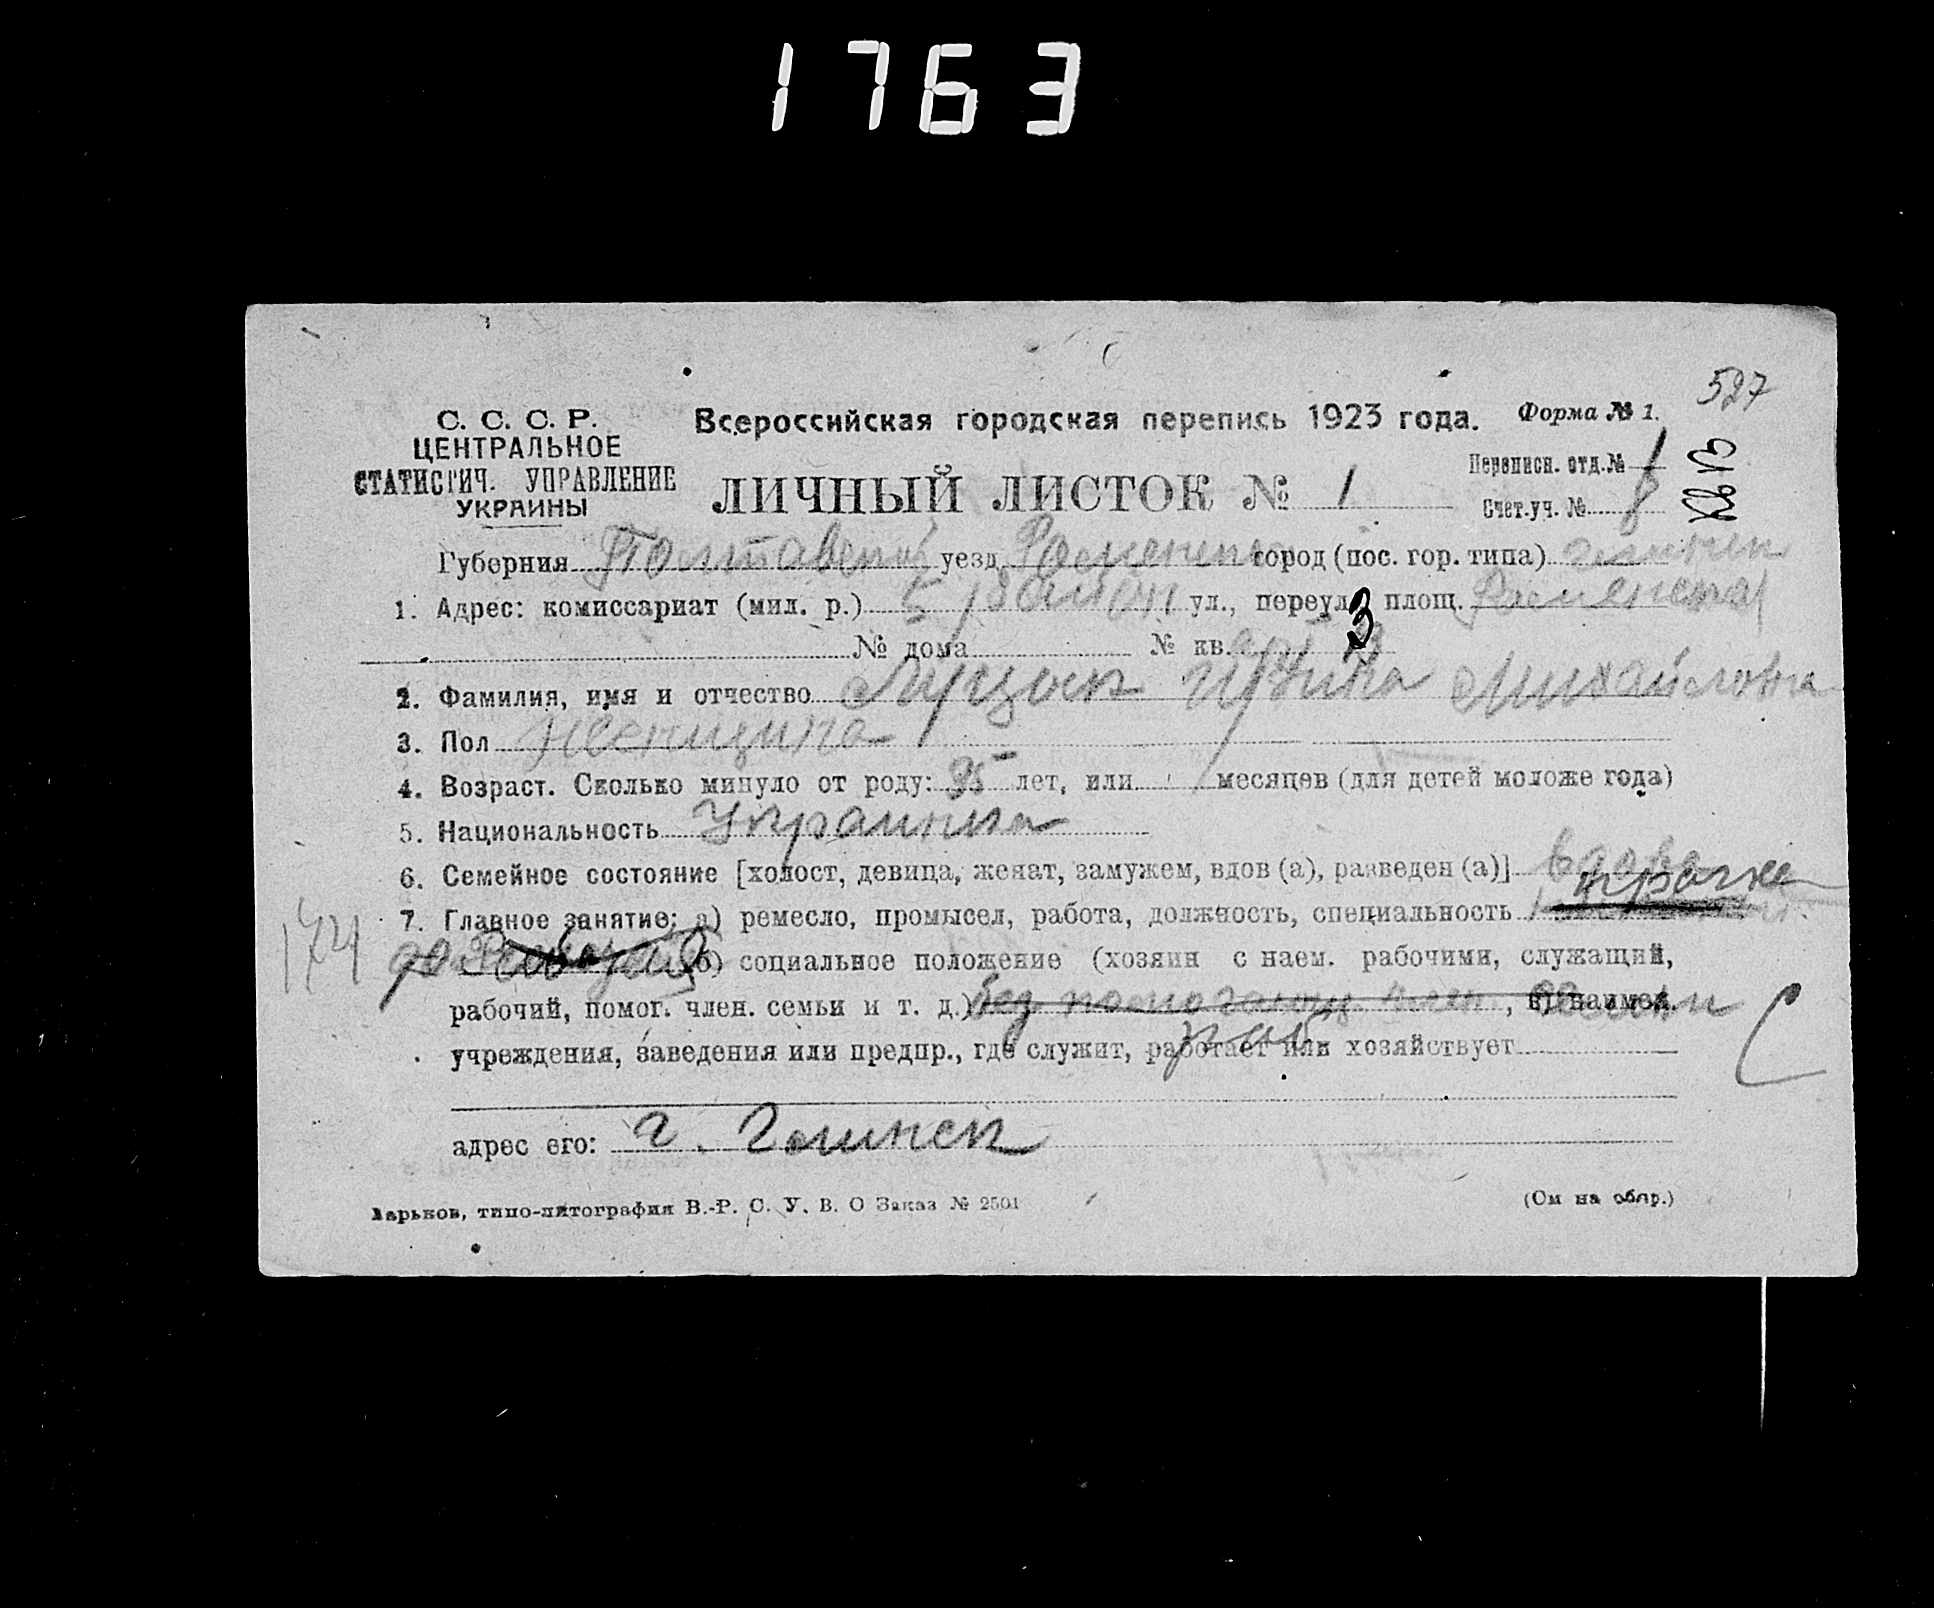 1763
527
С. С. С. Р.
ЦЕНТРАЛЬНОЕ
СТАТИСТИЧ. УПРАВЛЕНИЕ
УКРАИНЫ
Всероссийская городская перепись 1923 года.
Форма № 1.
ЛИЧНЫЙ ЛИСТОК № 1
Переписн. отд. № 1
Счет. уч. № 8
Губерния Полтавской уезд Роменск город (пос. гор. типа) Глинск
1. Адрес: комиссариат (мил. р.) 5 район ул., переул. 3 площ. Роменская
№ дома № кв.
2. Фамилия, имя и отчество Луцык Ирина Михайловна
3. Пол Женщина
4. Возраст. Сколько минуло от роду: 35 лет, или месяцев (для детей моложе года)
5. Национальность Украинка
6. Семейное состояние [холост, девица, женат, замужем, вдов (а), разведен (а)] вдова
7. Главное занятие: а) ремесло, промысел, работа, должность, специальность прачка
174
б) социальное положение (хозяин с наем. рабочими, служащий,
рабочий, помог. член. семьи и т. д.) без помогающ. член. семьи, в) наимен.
учреждения, заведения или предпр., где служит, работает или хозяйствует
адрес его: г. Глинск
Харьков, типо-литография В.-Р. С. У. В. О Заказ № 2501
(См на обор.)